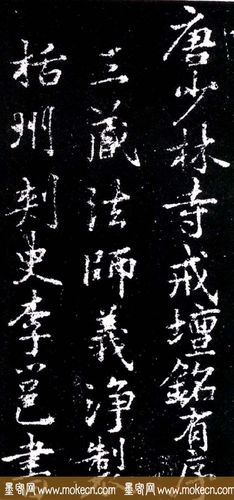 唐少林寺戒壇銘有序
三藏法師義浄制
括州刺史李邕書
墨客网 www.mokecn.com 墨客网 www.mokecn.com